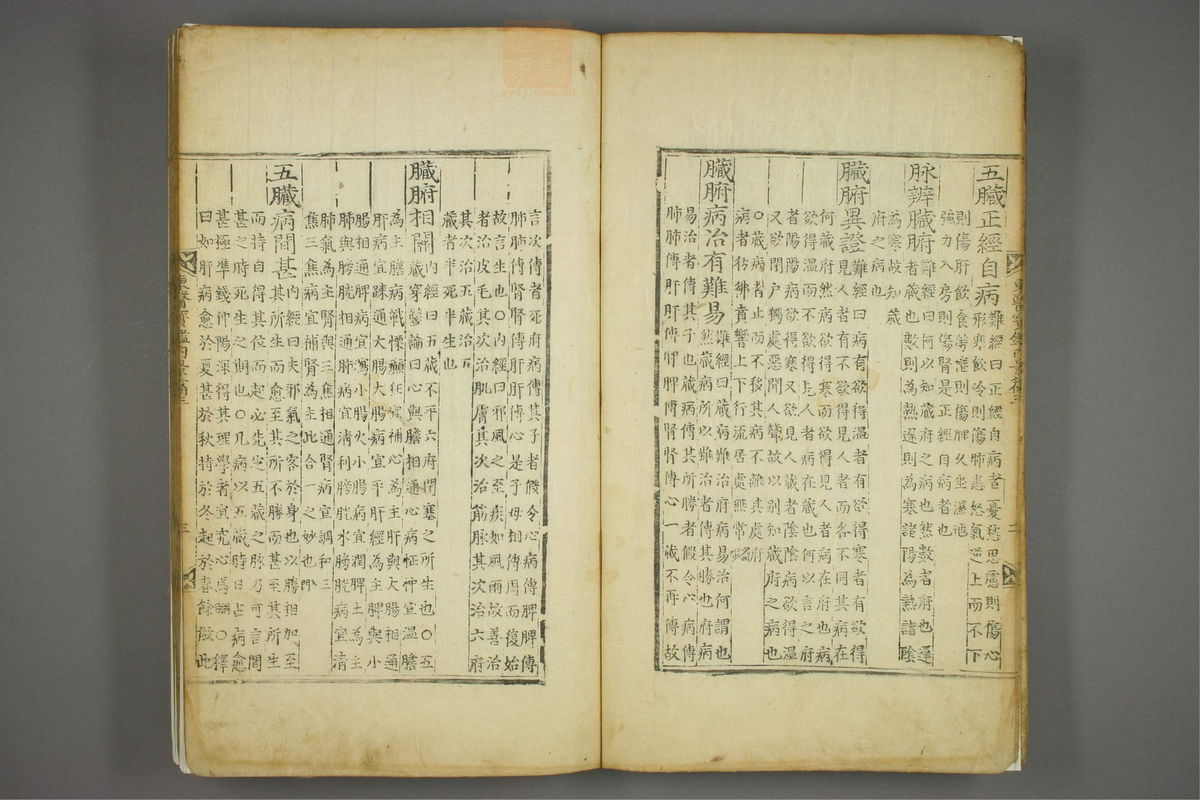 五臟正經自病難經曰正經自病者憂愁思慮則傷心
形寒飲冷則傷肺恚怒氣逆上而不下
則傷肝飲食勞倦則傷脾久坐濕地
強力入房則傷腎是正經自病者也
脉辨臟腑難經曰何以知藏府之病也然數者府也遲
者藏也數則為熱遲則為寒諸陽為熱諸陰
為寒故知藏
府之病也
臟腑異證難經曰病有欲得溫者有欲得寒者有欲得
見人者有不欲得見人者而各不同其病在
何藏府然病欲得寒而欲得見人者病在府也病
欲得溫而不欲得見人者病在藏也何以言之府
者陽陽病欲得寒又欲見人藏者陰陰病欲得溫
又欲閉戶獨處惡聞人聲故以別知藏府之病也
○藏病者止而不移其病不離其處府
病者彷彿賁響上下行流居處無常
臟腑病治有難易難經曰藏病難治府病易治何謂也
然藏病所以難治者傳其勝也府病
易治者傳其子也藏病傳其所勝者假令心病傳
肺肺傳肝肝傳脾脾傳腎腎傳心一藏不再傳故
言次傳者死府病傳其子者假令心病傳脾脾傳
肺肺傳腎腎傳肝肝傳心是子母相傳周而復始
故言生也○內經曰邪風之至疾如風雨故善治
者治皮毛其次治肌膚其次治筋脉其次治六府
其次治五藏治五
藏者半死半生也
臟腑相關內經曰五藏不平六府閉塞之所生也○五
藏穿鑿論曰心與膽相通心病怔忡宜溫膽
為主膽病戰慄癲狂宜補心為主肝與大腸相通
肝病宜踈通大腸大腸病宜平肝經為主脾與小
腸相通脾病宜瀉小腸火小腸病宜潤脾土為主
肺與膀胱相通肺病宜清利膀胱水膀胱病宜清
肺氣為主腎與三焦相通腎病宜調和三
焦三焦病宜補腎為主此合一之妙也入門
五臟病間甚內經曰夫邪氣之客於身也以勝相加至
其所生而愈至其所不勝而甚至其所生
而持自得其位而起必先定五藏之脉乃可言間
甚之時死生之期也○凡病以五藏時日占病愈
甚極準錢仲陽深得其理學者宜究心焉綱目○釋
曰如肝病愈於夏甚於秋持於冬起於春餘倣此
東醫寶鑑內景篇三
三